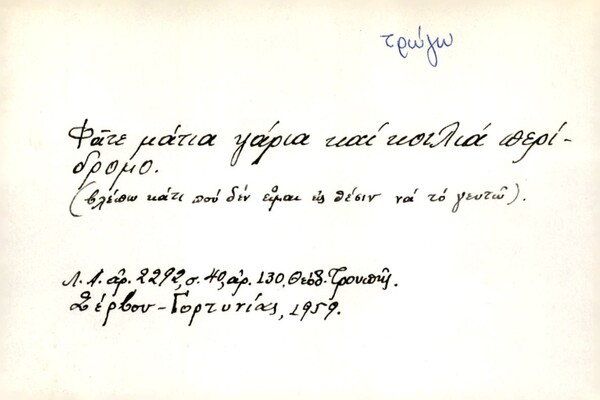 τρώγω
Φᾶτε μάτια ψάρια καί κοιλιά περί-
δρομο.
(βλέπω κάτι πού δέν εἶμαι εἰς θέσιν νά τό γευτῶ).
Λ. Α. ἀρ. 2292, σ. 40, ἀρ. 130, Θεόδ. Τρουπῆς.
Σέρβου - Γορτυνίας, 1959.